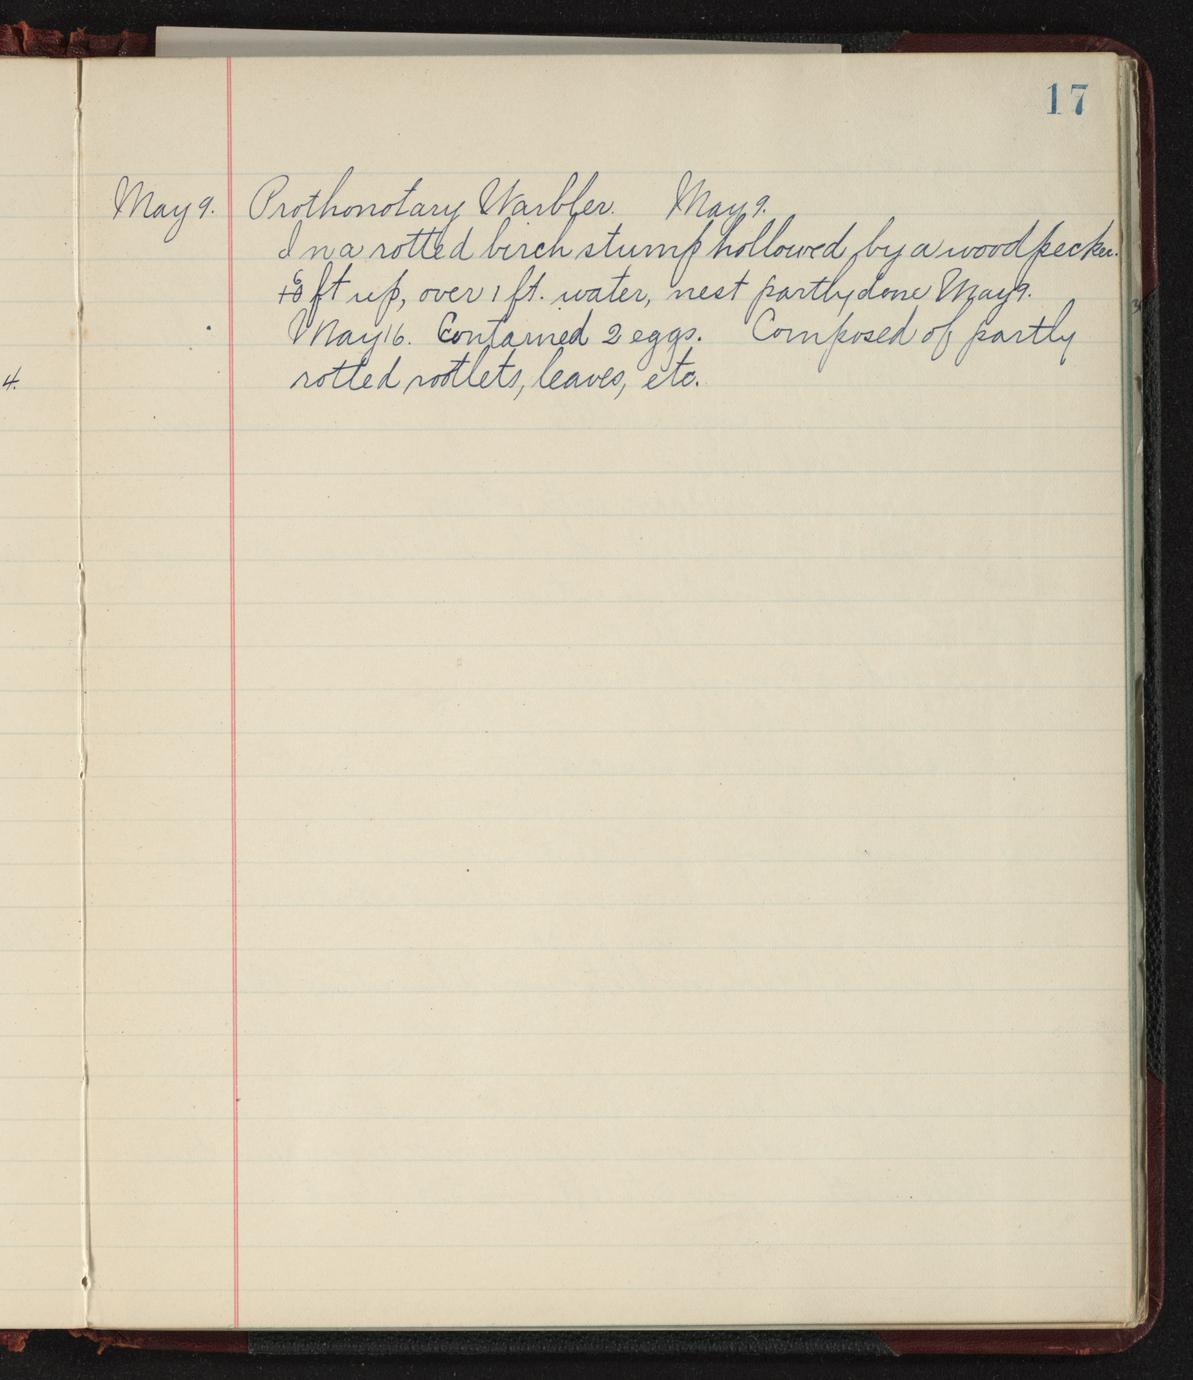 17
May 9. Prothonotary Warbler. May 9.
In a rotted birch stump hollowed by a woodpecker.
ft up, over 1 ft. water, nest partly done May 9.
May 16. Contained 2 eggs. Composed of partly
4.
rotted rootlets, leaves, etc.